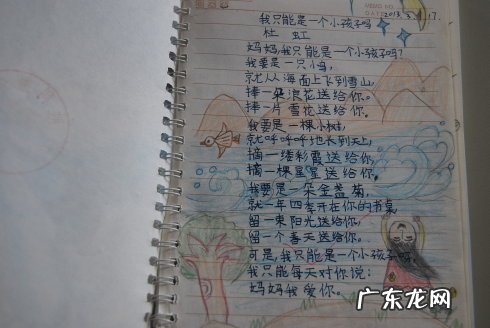 MEMO NO.
DATE 2013.3.17.
我只能是一个小孩子吗
杜 虹
妈妈,我只能是一个小孩子吗?
我要是一只小鸟,
就从海面上飞到雪山,
捧一朵浪花送给你。
捧一片雪花送给你。
我要是一棵小树,
就呼呼呼地长到天上,
摘一缕彩霞送给你,
摘一棵星星送给你。
我要是一朵金盏菊,
就一年四季开在你的书桌,
留一束阳光送给你,
留一个春天送给你。
可是,我只能是一个小孩子吗?
我只能每天对你说:
妈妈我爱你。
广东龙网